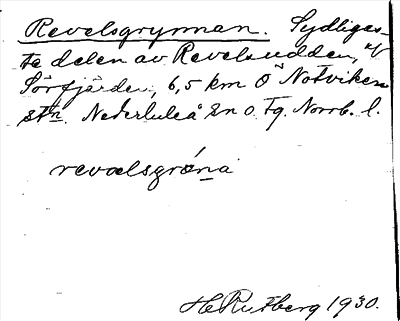 Revelsgrynnan. Sydligas-
te delen av Revelsudden, v/
Sörfjärden, 6,5 km O Notviken
stn. Nederluleå sn o. tg. Norrb. l.
revælsgróna
HRutberg 1930.